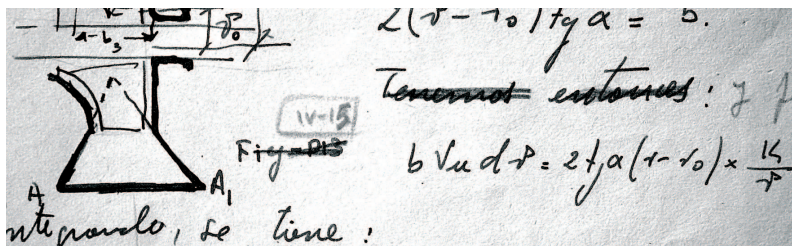 a-b₃
r₀
2(r-r₀) tg α = b.
Tenemos entonces : y
IV-15
Fig
b Vu dr = 2 tg α (r-r₀) × K/r
A A₁
ntegrando, se tiene :